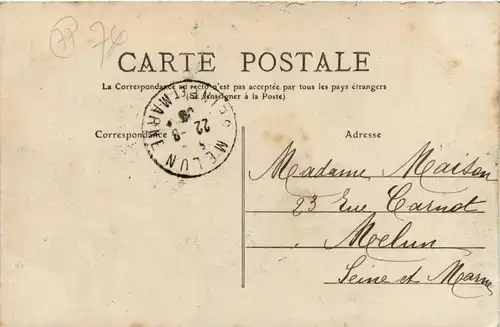 78
CARTE POSTALE
La Correspondance au recto n'est pas acceptée par tous les pays étrangers
(Se renseigner à la Poste)
Correspondance
Adresse
MELUN
SEINE ET MARNE
22 -8
Madame Maison
23 Rue Carnot
Melun
Seine et Marne